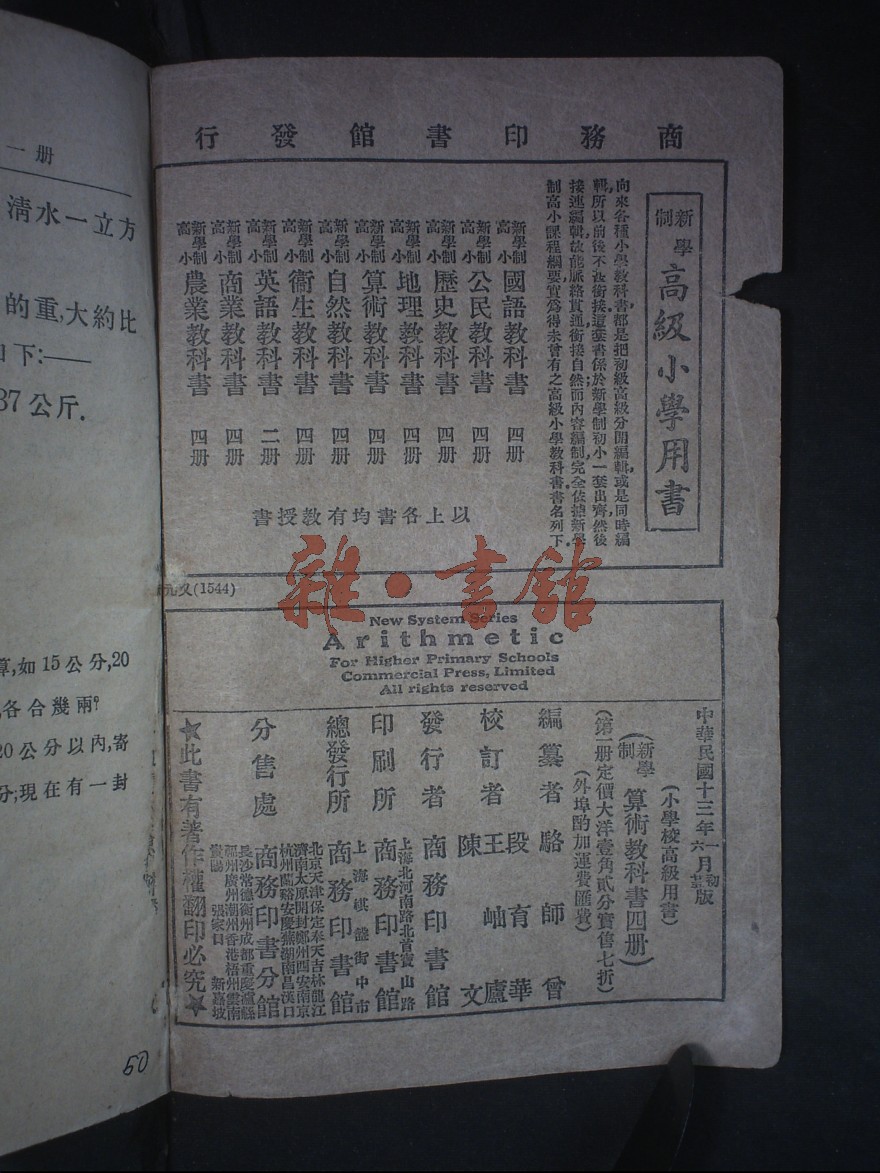 一册
清水一立方
的重,大約比
下:——
37公斤.
算,如15公分,20
各合幾兩?
20公分以內,寄
分;現在有一封
60
商務印書館發行
新學制
高級小學用書
向來各種小學教科書,都是把初級高級分開編輯,或是同時編
輯,所以前後不甚銜接;這套書係於新學制初小一套出齊,然後
接連編輯,故能脈絡貫通,銜接自然;而內容編制,完全依據新學
制高小課程綱要,實爲得未曾有之高級小學教科書.書名列下.
新學制高小 國語教科書 四册
新學制高小 公民教科書 四册
新學制高小 歷史教科書 四册
新學制高小 地理教科書 四册
新學制高小 算術教科書 四册
新學制高小 自然教科書 四册
新學制高小 衞生教科書 四册
新學制高小 英語教科書 二册
新學制高小 商業教科書 四册
新學制高小 農業教科書 四册
以上各書均有教授書
(1544)
雜·書館
New System Series
Arithmetic
For Higher Primary Schools
Commercial Press, Limited
All rights reserved
中華民國十三年一月初版
(小學校高級用書)
(新學制 算術教科書四册)
(第一册定價大洋壹角貳分實售七折)
(外埠酌加運費匯費)
編纂者 駱師曾
段育華
校訂者 王岫廬
陳文
發行者 商務印書館
上海北河南路北首寶山路
印刷所 商務印書館
上海棋盤街中市
總發行所 商務印書館
北京天津保定奉天吉林龍江
濟南太原開封鄭州西安南京
杭州蘭谿安慶蕪湖南昌漢口
分售處 商務印書分館
長沙常德衡州成都重慶瀘縣
福州廣州潮州香港梧州雲南
貴陽 張家口 新嘉坡
★此書有著作權翻印必究★